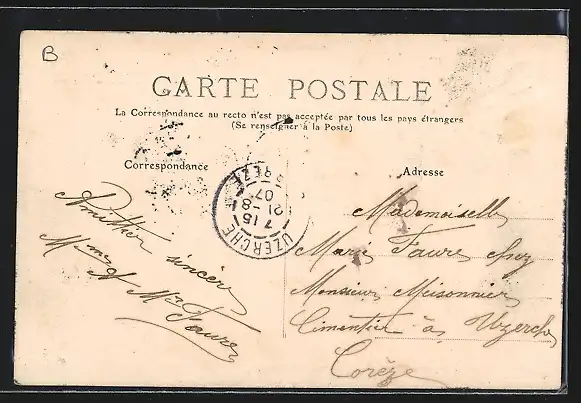 B
CARTE POSTALE
La Correspondance au recto n'est pas acceptée par tous les pays étrangers
(Se renseigner à la Poste)
Correspondance
Adresse
UZERCHE
7 15
21 -8
07
CORREZE
Amitiés sincères
Mme A Faure
Mademoiselle
Marie Faure chez
Monsieur Meisonnier
Cimentier à Uzerche
Corèze